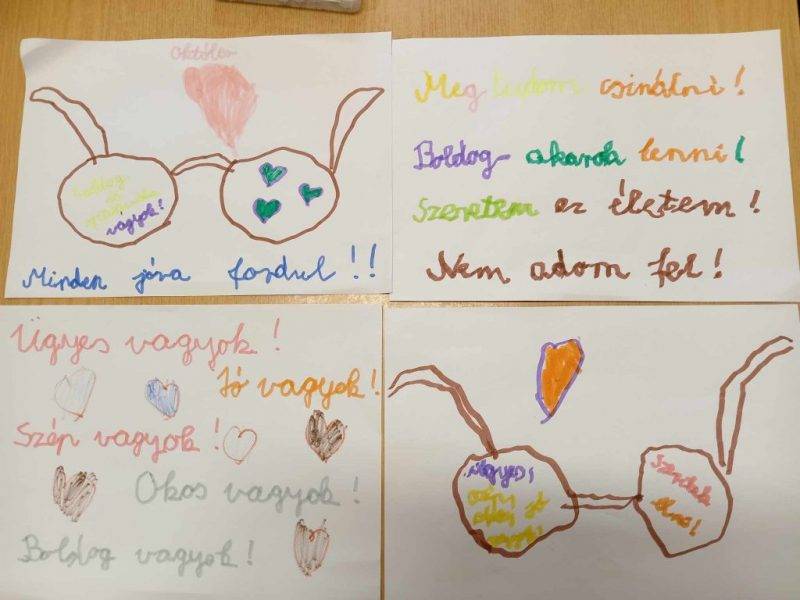 Október
Boldog
vagyok!
Minden jóra fordul!!
Meg tudom csinálni!
Boldog akarok lenni!
Szeretem az életem!
Nem adom fel!
Ügyes vagyok!
Jó vagyok!
Szép vagyok!
Okos vagyok!
Boldog vagyok!
jó
vagyok!
Szeretek
élni!